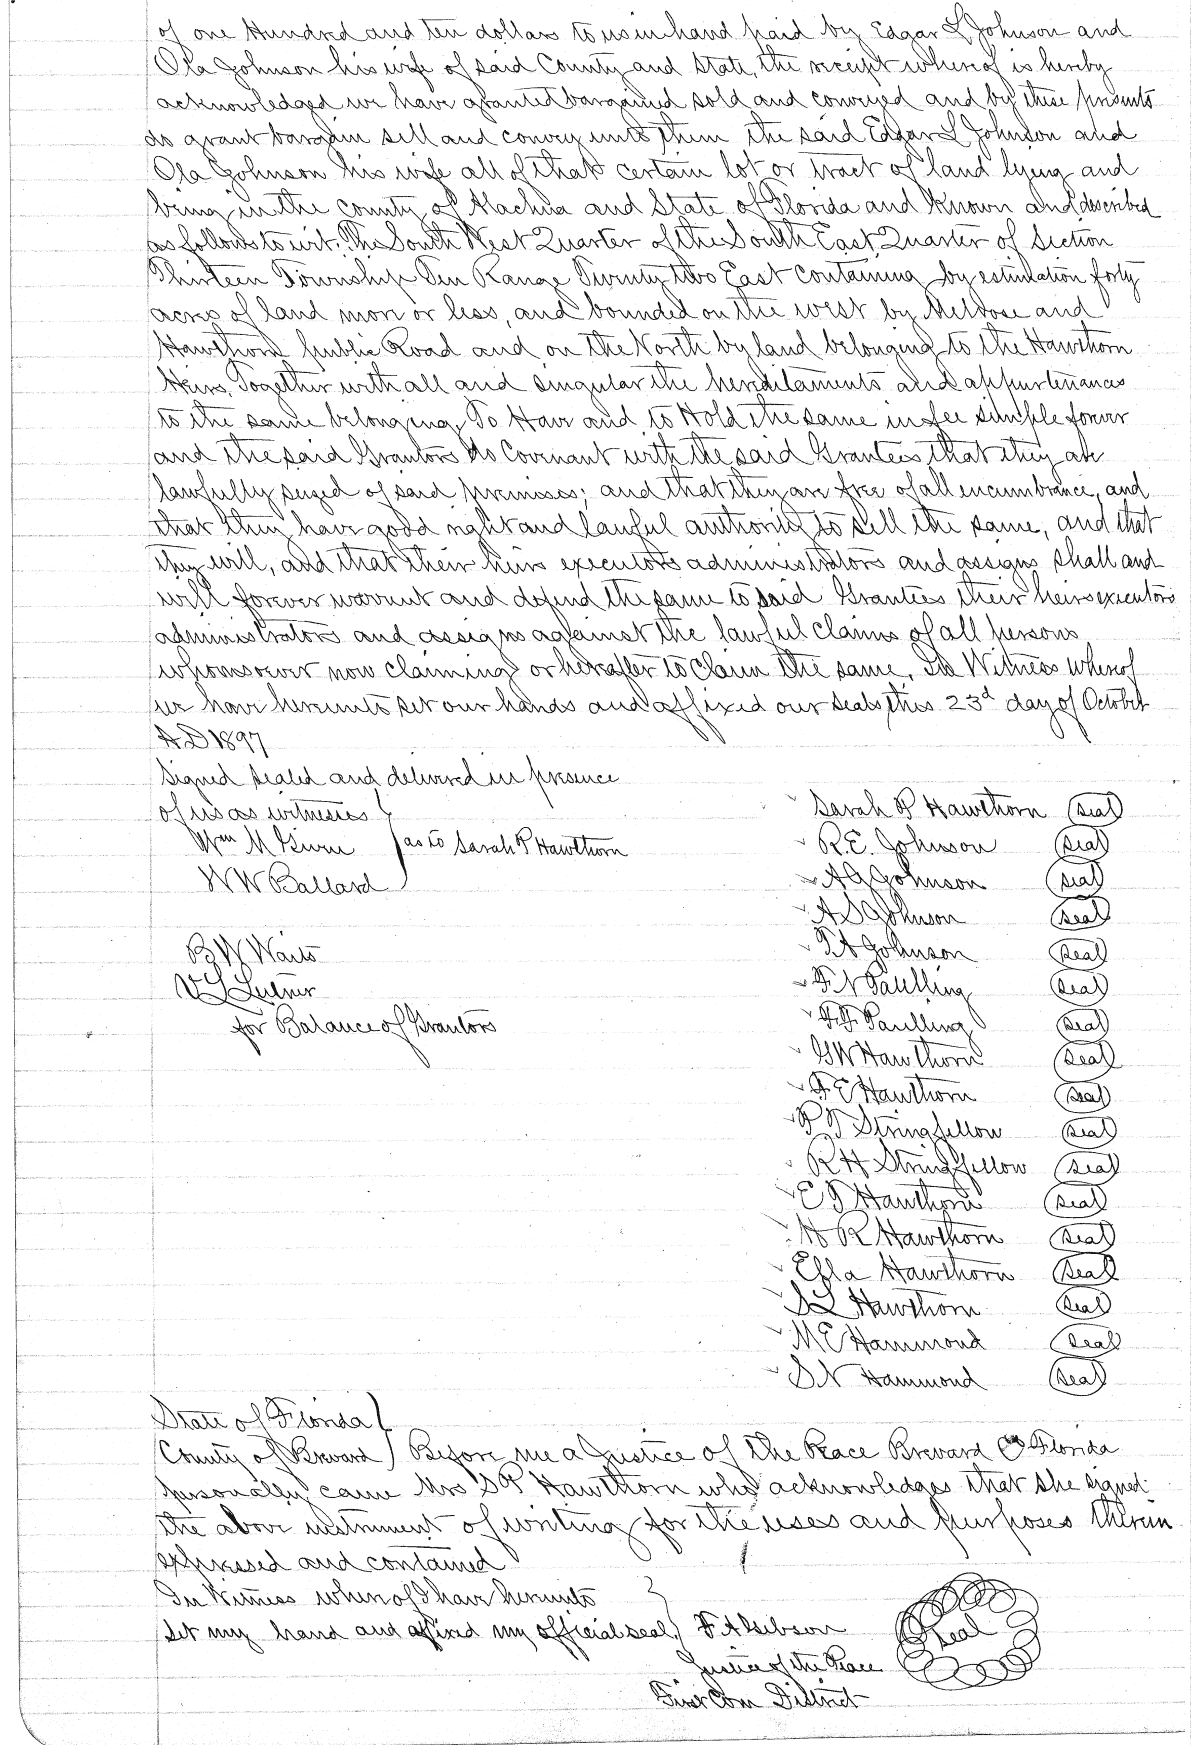 of one Hundred and ten dollars to us in hand paid by Edgar L Johnson and
Ola Johnson his wife of said County and State, the receipt whereof is hereby
acknowledged we have granted bargained sold and conveyed and by these presents
do grant bargain sell and convey unto them the said Edgar L Johnson and
Ola Johnson his wife all of that certain lot or tract of land lying and
being in the county of Alachua and State of Florida and known and described
as follows to wit: The South West Quarter of the South East Quarter of Section
Thirteen Township Ten Range Twenty two East containing by estimation forty
acres of land more or less, and bounded on the west by Melrose and
Hawthorn public Road and on the North by land belonging to the Hawthorn
Heirs. Together with all and singular the hereditaments and appurtenances
to the same belonging, To Have and to Hold the same in fee simple forever
and the said Grantors do Covenant with the said Grantees that they are
lawfully seized of said premises; and that they are free of all encumbrance, and
that they have good right and lawful authority to sell the same, and that
they will, and that their heirs executors administrators and assigns shall and
will forever warrant and defend the same to said Grantees their heirs executors
administrators and assigns against the lawful claims of all persons
whomsoever now claiming or hereafter to claim the same, In Witness whereof
we have hereunto set our hands and affixed our seals this 23d day of October
A D 1897
Signed sealed and delivered in presence
of us as witnesses
Sarah P Hawthorn Seal
Wm as to Sarah P Hawthorn
R.E. Johnson Seal
W W Ballard
A G Johnson Seal
A S Johnson Seal
B W Waits
T A Johnson Seal
V L
F N Paulling Seal
for Balance of Grantors
F F Paulling Seal
G W Hawthorn Seal
F E Hawthorn Seal
P P Stringfellow Seal
R H Stringfellow Seal
E P Hawthorn Seal
H R Hawthorn Seal
Effa Hawthorn Seal
S L Hawthorn Seal
M E Hammond Seal
S N Hammond Seal
State of Florida
County of Brevard Before me a Justice of the Peace Brevard Co Florida
personally came Mrs S P Hawthorn who acknowledges that she signed
the above instrument of writing for the uses and purposes therein
expressed and contained
In Witness whereof I have hereunto
set my hand and affixed my official seal, F A Gibson Seal
Justice of the Peace
First Com District